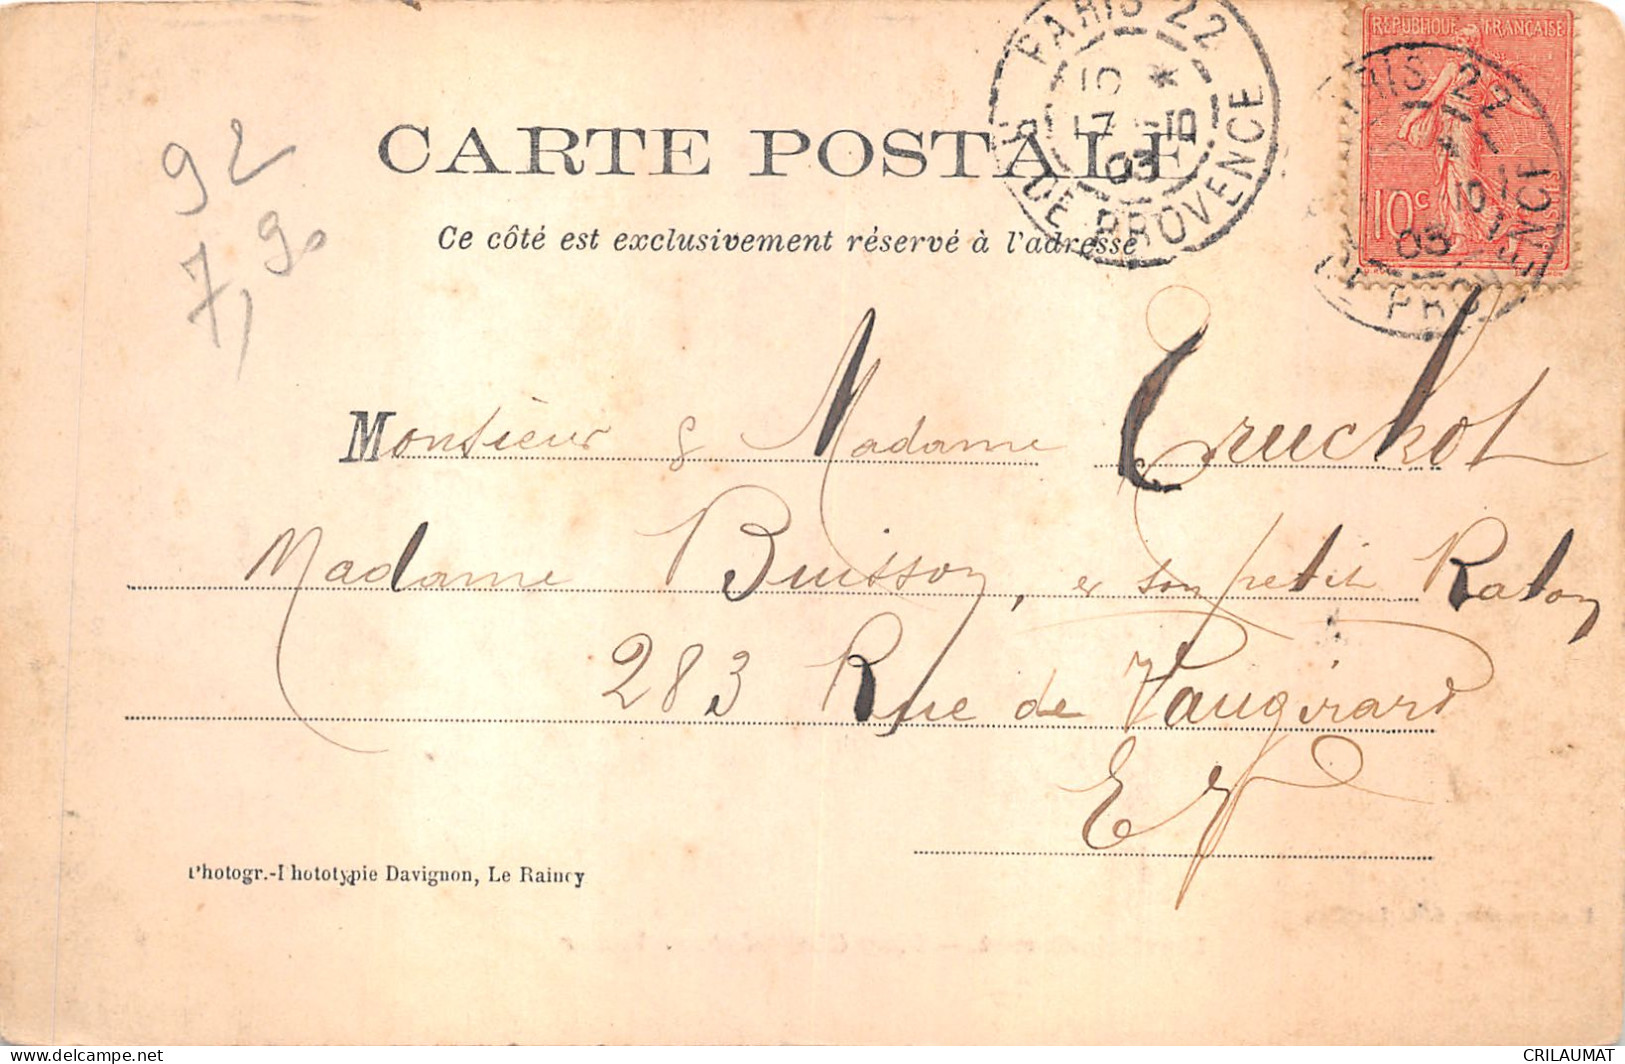 PARIS 22
15 *
17 -10
03
R. DE PROVENCE
REPUBLIQUE FRANÇAISE
10c
PARIS 22
03
DE PROVENCE
92
7,90
CARTE POSTALE
Ce côté est exclusivement réservé à l'adresse
Monsieur & Madame Cruchot
Madame Buisson, et son petit Raton
283 Rue de Vaugirard
EV
Photogr.-Phototypie Davignon, Le Raincy
CRILAUMAT
delcampe.net